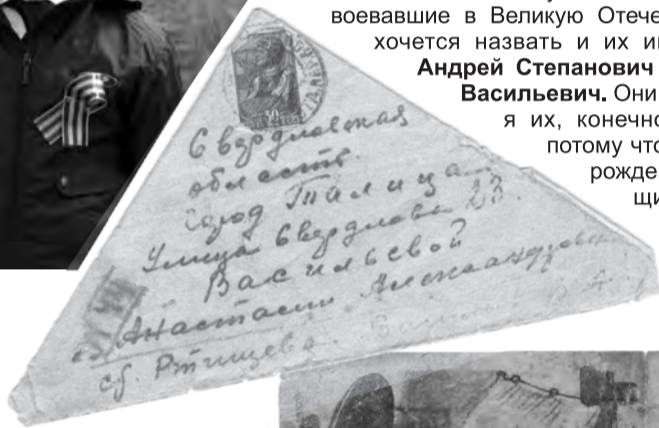 воевавшие в Великую Отече
хочется назвать и их и
Андрей Степанович
Васильевич. Они
я их, конечно
потому что
рожде
щи
Свердловская
область.
город Талица
Улица Свердлова 23.
Васильевой
Анастасии Александровне
ст. Ртищева